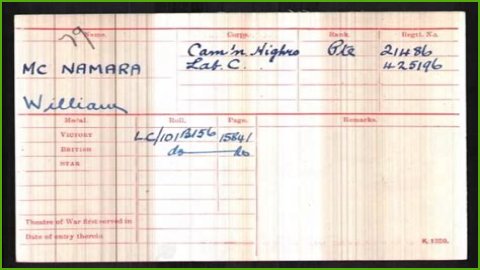 79
Name. Corps. Rank. Regtl. No.
Cam'n Highrs Pte 21486
MC NAMARA Lab. C. 425196
William
Medal. Roll. Page. Remarks.
VICTORY LC/101B156 15841
BRITISH do do
STAR
Theatre of War first served in
Date of entry therein
K. 1380.